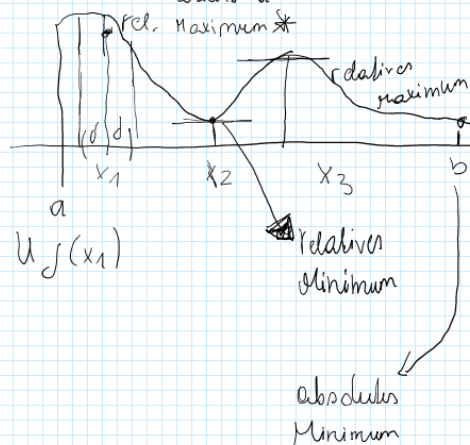 rel. Maximum *
relatives
Maximum
δ δ
x1
x2
x3
a
b
Uδ(x1)
relatives
Minimum
absolutes
Minimum